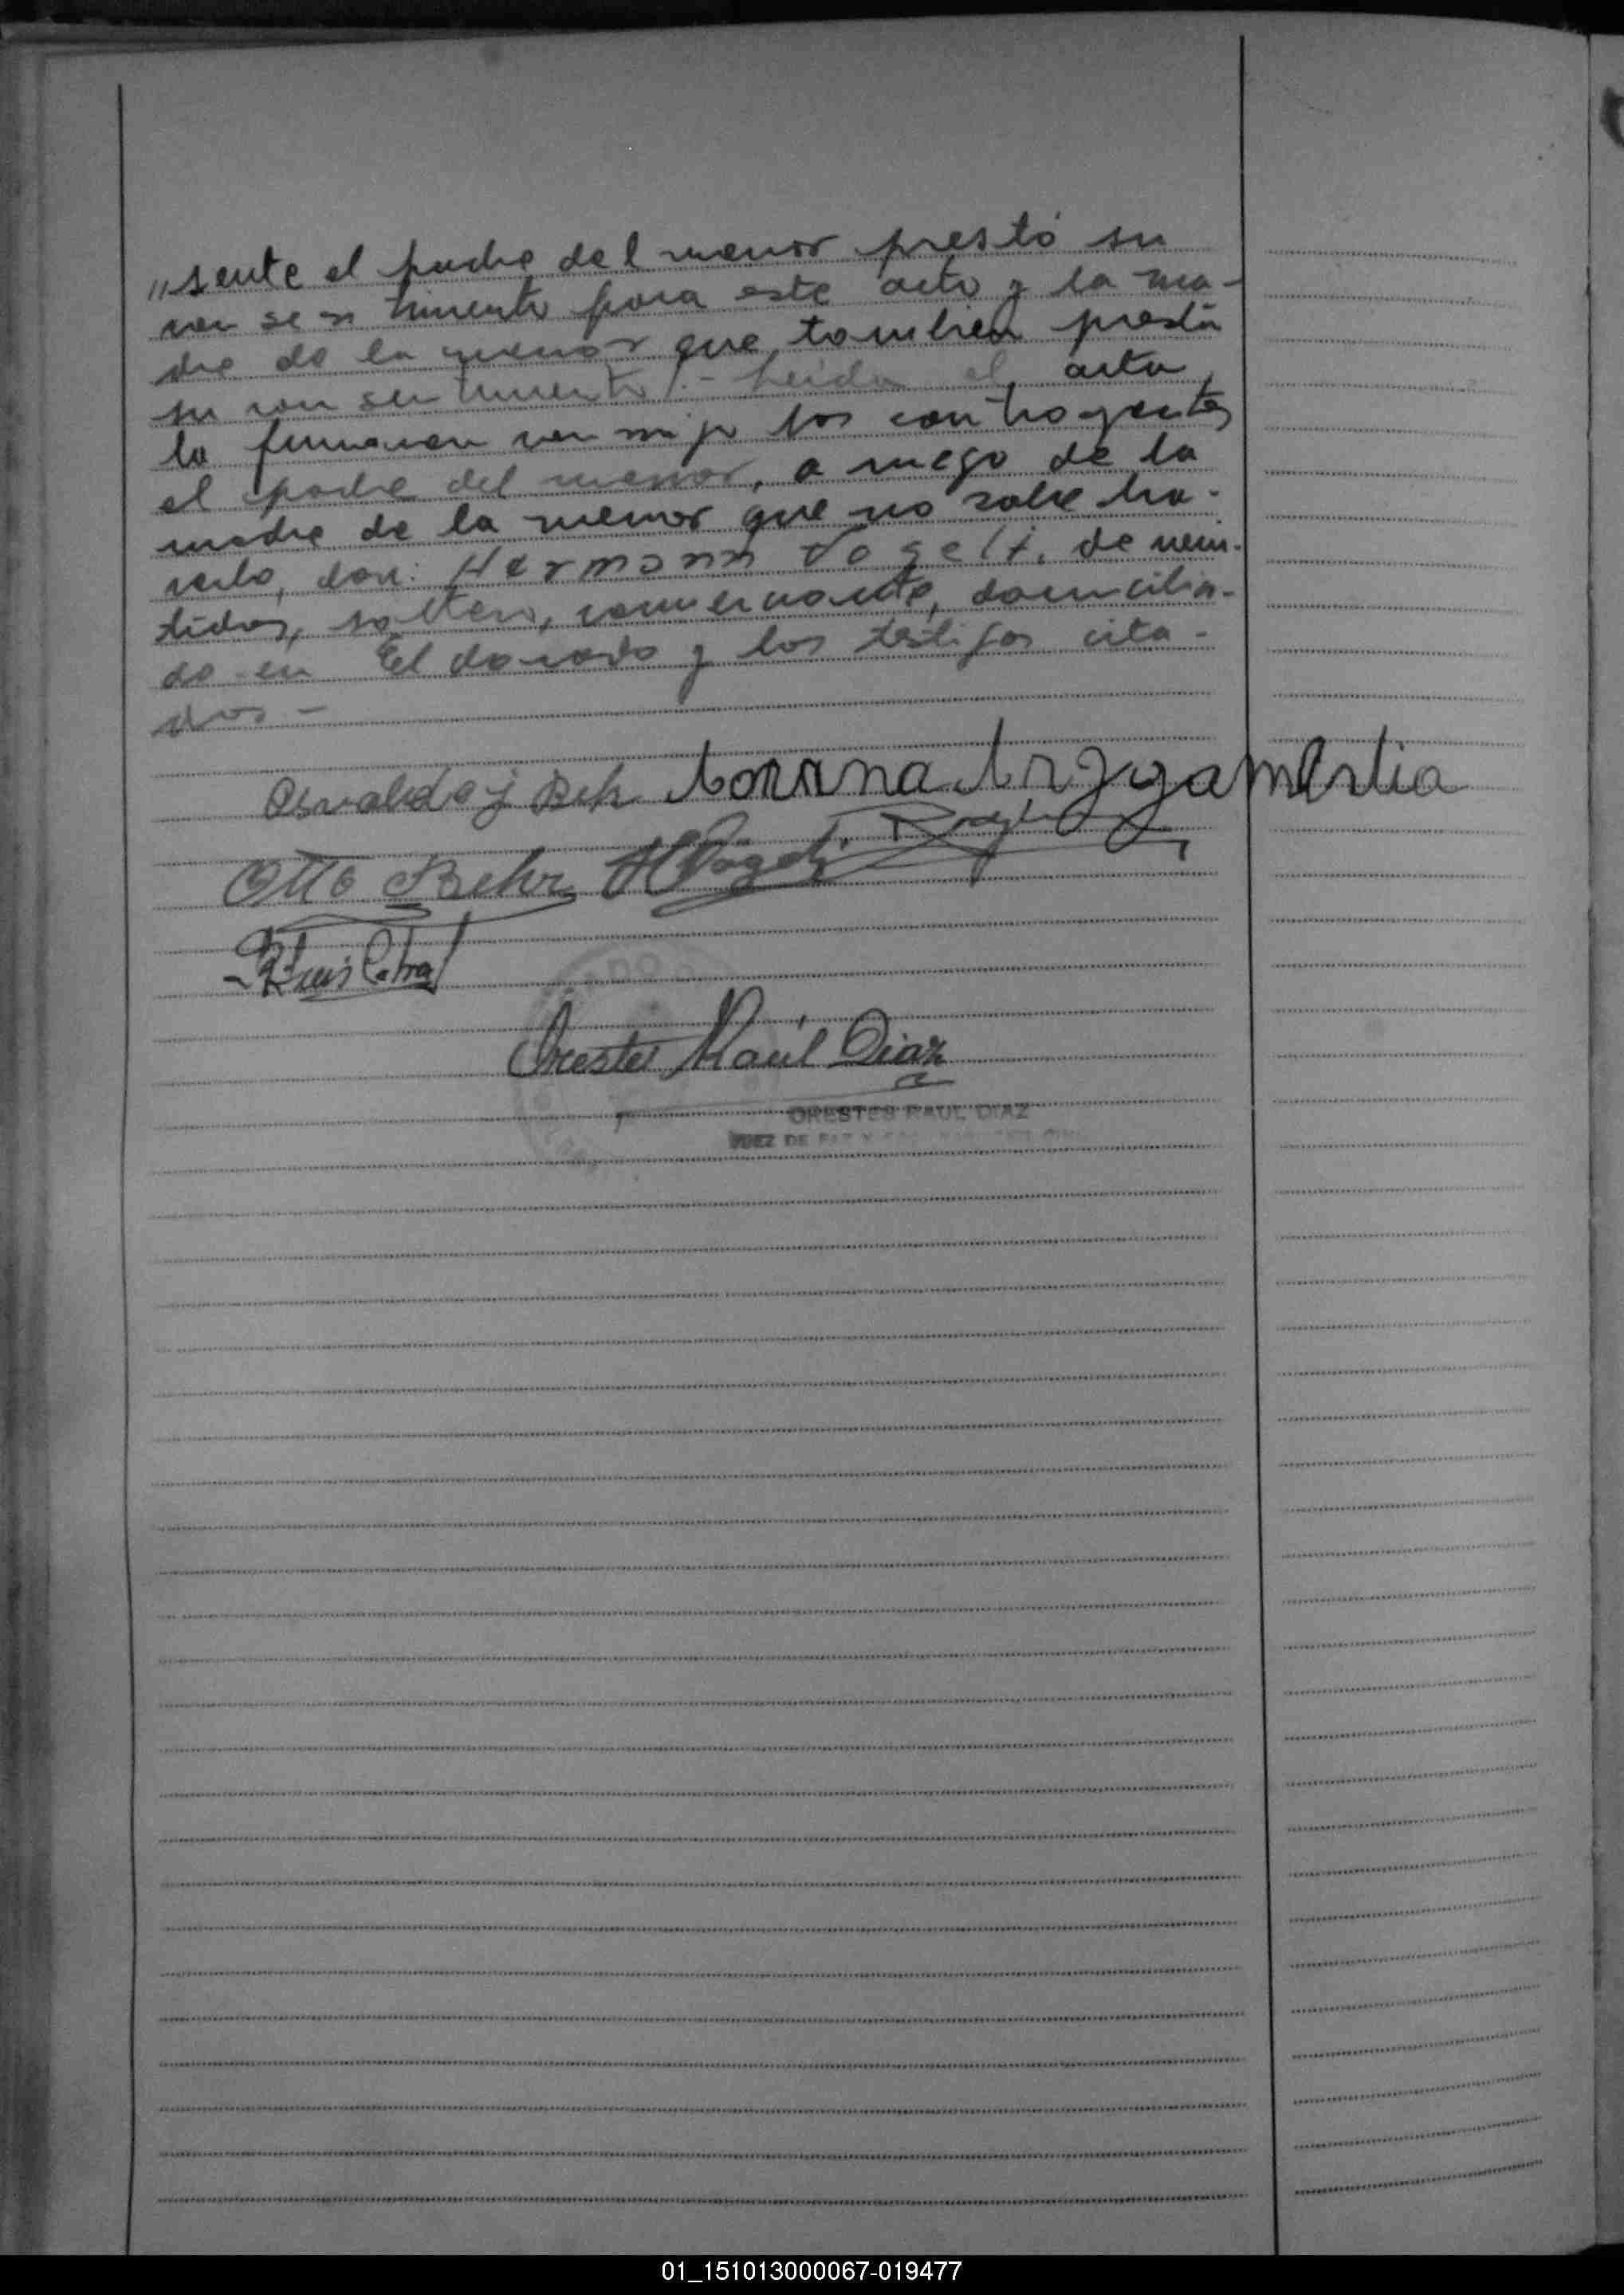 "sente el padre del menor prestó su
con sen timiento para este acto y la ma-
dre de la menor que tambien prestó
su con sen timiento.- Leida el acta
la firmaron con migo los contrayentes
el padre del menor, a ruego de la
madre de la menor que no sabe ha-
cerlo, don: Hermann Vogeli, de vein-
tidos, soltero, comerciante, domicilia-
do en El dorado y los testigos cita-
dos -
Osvaldo j Behr
Otto Behr H Vögeli
Orestes Raúl Diaz
ORESTES RAUL DIAZ
JUEZ DE PAZ Y
01_151013000067-019477